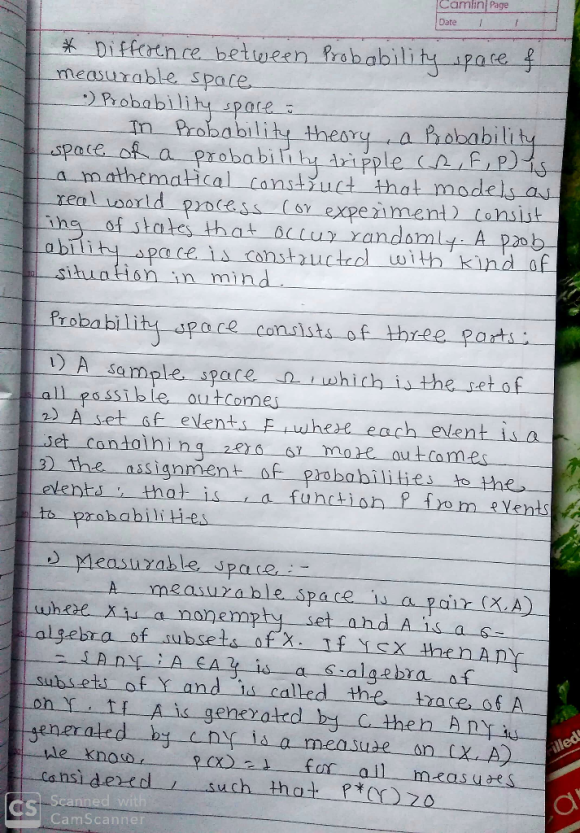 Camlin Page
Date / /
* Difference between Probability space &
measurable space
•) Probability space =
In Probability theory, a Probability
space of a probability tripple (Ω, F, P) is
a mathematical construct that models as
real world process (or experiment) consist
ing of states that occur randomly. A prob
ability space is constructed with kind of
situation in mind.
Probability space consists of three parts:
1) A sample space Ω, which is the set of
all possible outcomes
2) A set of events F, where each event is a
set containing zero or more outcomes
3) The assignment of probabilities to the
events; that is, a function P from events
to probabilities
•) Measurable space :-
A measurable space is a pair (X, A)
where X is a nonempty set and A is a σ-
algebra of subsets of X. If Y⊂X then A∩Y
= {A∩Y : A ∈ A} is a σ-algebra of
subsets of Y and is called the trace of A
on Y. If A is generated by C then A∩Y is
generated by C∩Y is a measure on (X, A)
We know, P(X) = 1 for all measures
considered, such that P*(Y) > 0
CS Scanned with
CamScanner